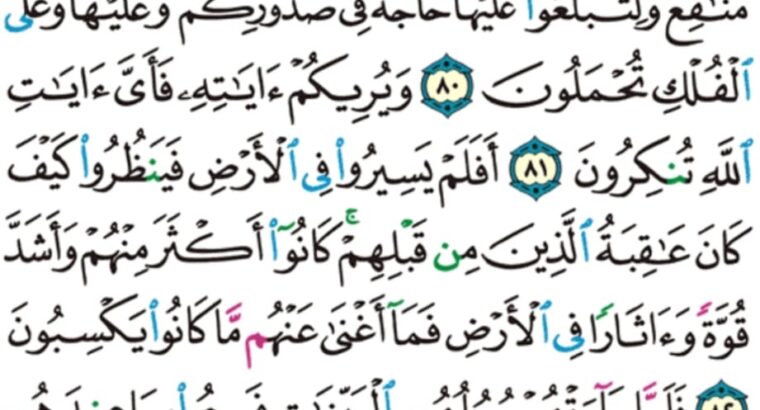 مَنَٰفِعُ وَلِتَبْلُغُوا۟ عَلَيْهَا حَاجَةً فِى صُدُورِكُمْ وَعَلَيْهَا وَعَلَى
ٱلْفُلْكِ تُحْمَلُونَ ٨٠ وَيُرِيكُمْ ءَايَٰتِهِۦ فَأَىَّ ءَايَٰتِ
ٱللَّهِ تُنكِرُونَ ٨١ أَفَلَمْ يَسِيرُوا۟ فِى ٱلْأَرْضِ فَيَنظُرُوا۟ كَيْفَ
كَانَ عَٰقِبَةُ ٱلَّذِينَ مِن قَبْلِهِمْ ۚ كَانُوٓا۟ أَكْثَرَ مِنْهُمْ وَأَشَدَّ
قُوَّةً وَءَاثَارًا فِى ٱلْأَرْضِ فَمَآ أَغْنَىٰ عَنْهُم مَّا كَانُوا۟ يَكْسِبُونَ